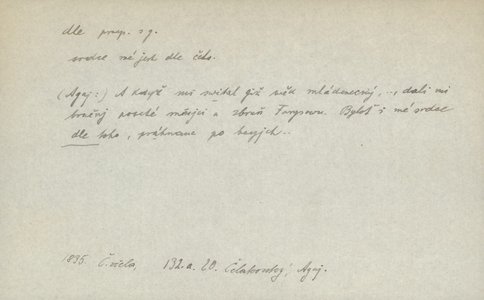 dle prep. s g.
srdce mé jest dle čeho.
(Agaj:) A když mi svital již věk mládenecný, .., dali mi
brněný poseté měsíci a zbraň Turpsovu. Byloť i mé srdce
dle toho, prahnauc po bojích..
1835 Č.včela, 132.a. 20. Čelakovský, Agaj.